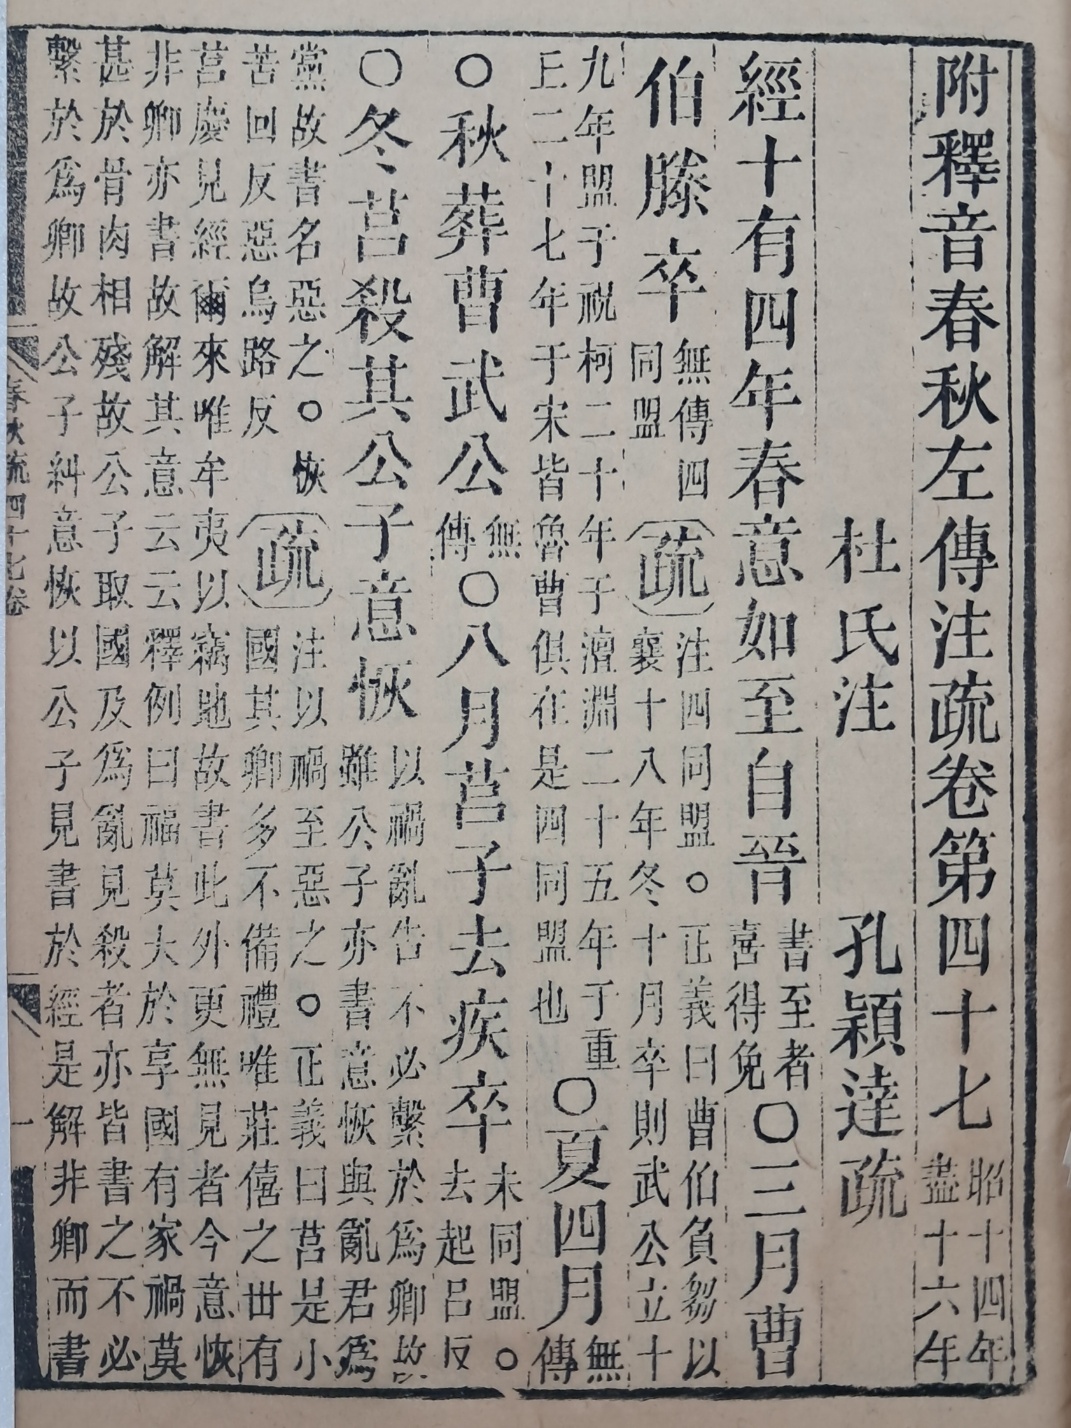 附釋音春秋左傳注疏卷第四十七昭十四年盡十六年
杜氏注 孔穎達疏
經十有四年春意如至自晉書至者喜得免○三月曹
伯滕卒無傳四同盟疏注四同盟○正義曰曹伯負芻以襄十八年冬十月卒則武公立十
九年盟于祝柯二十年于澶淵二十五年于重丘二十七年于宋皆魯曹俱在是四同盟也○夏四月無傳
○秋葬曹武公無傳○八月莒子去疾卒未同盟○去起呂反
○冬莒殺其公子意恢以禍亂告不必繫於爲卿故雖公子亦書意恢與亂君爲
黨故書名惡之○恢苦回反惡烏路反疏注以禍至惡之○正義曰莒是小國其卿多不備禮唯莊僖之世有
莒慶見經爾來唯牟夷以竊地故書此外更無見者今意恢
非卿亦書故解其意云云釋例曰福莫大於享國有家禍莫
甚於骨肉相殘故公子取國及爲亂見殺者亦皆書之不必
繫於爲卿故公子糾意恢以公子見書於經是解非卿而書
春秋疏四十七卷
一